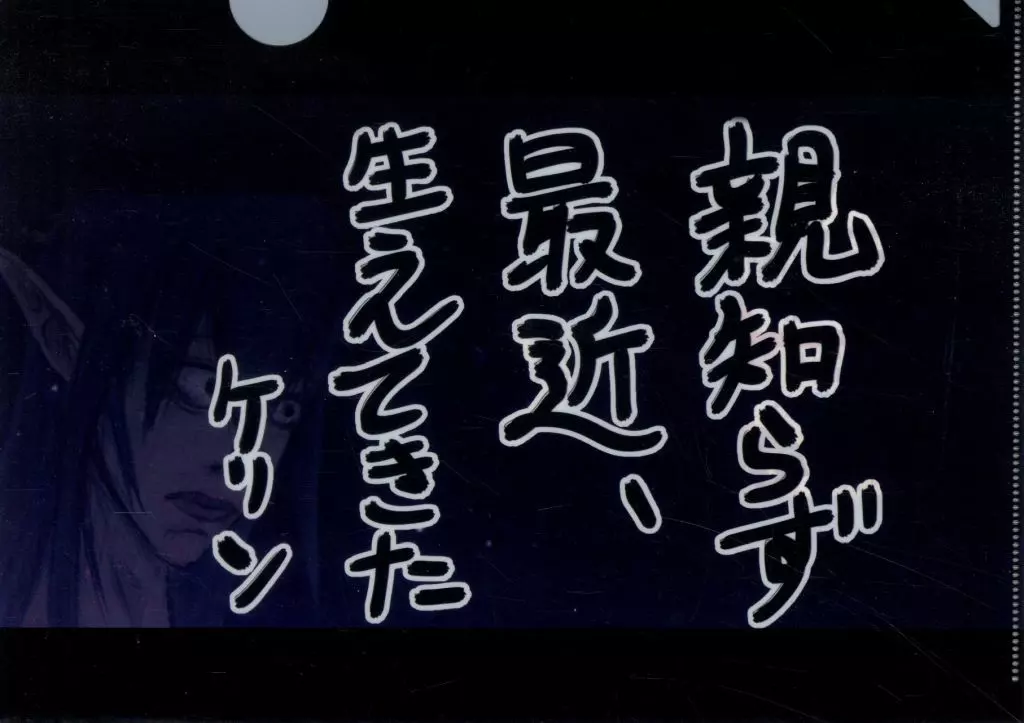 親知らず
最近、
生えてきた
ケリン